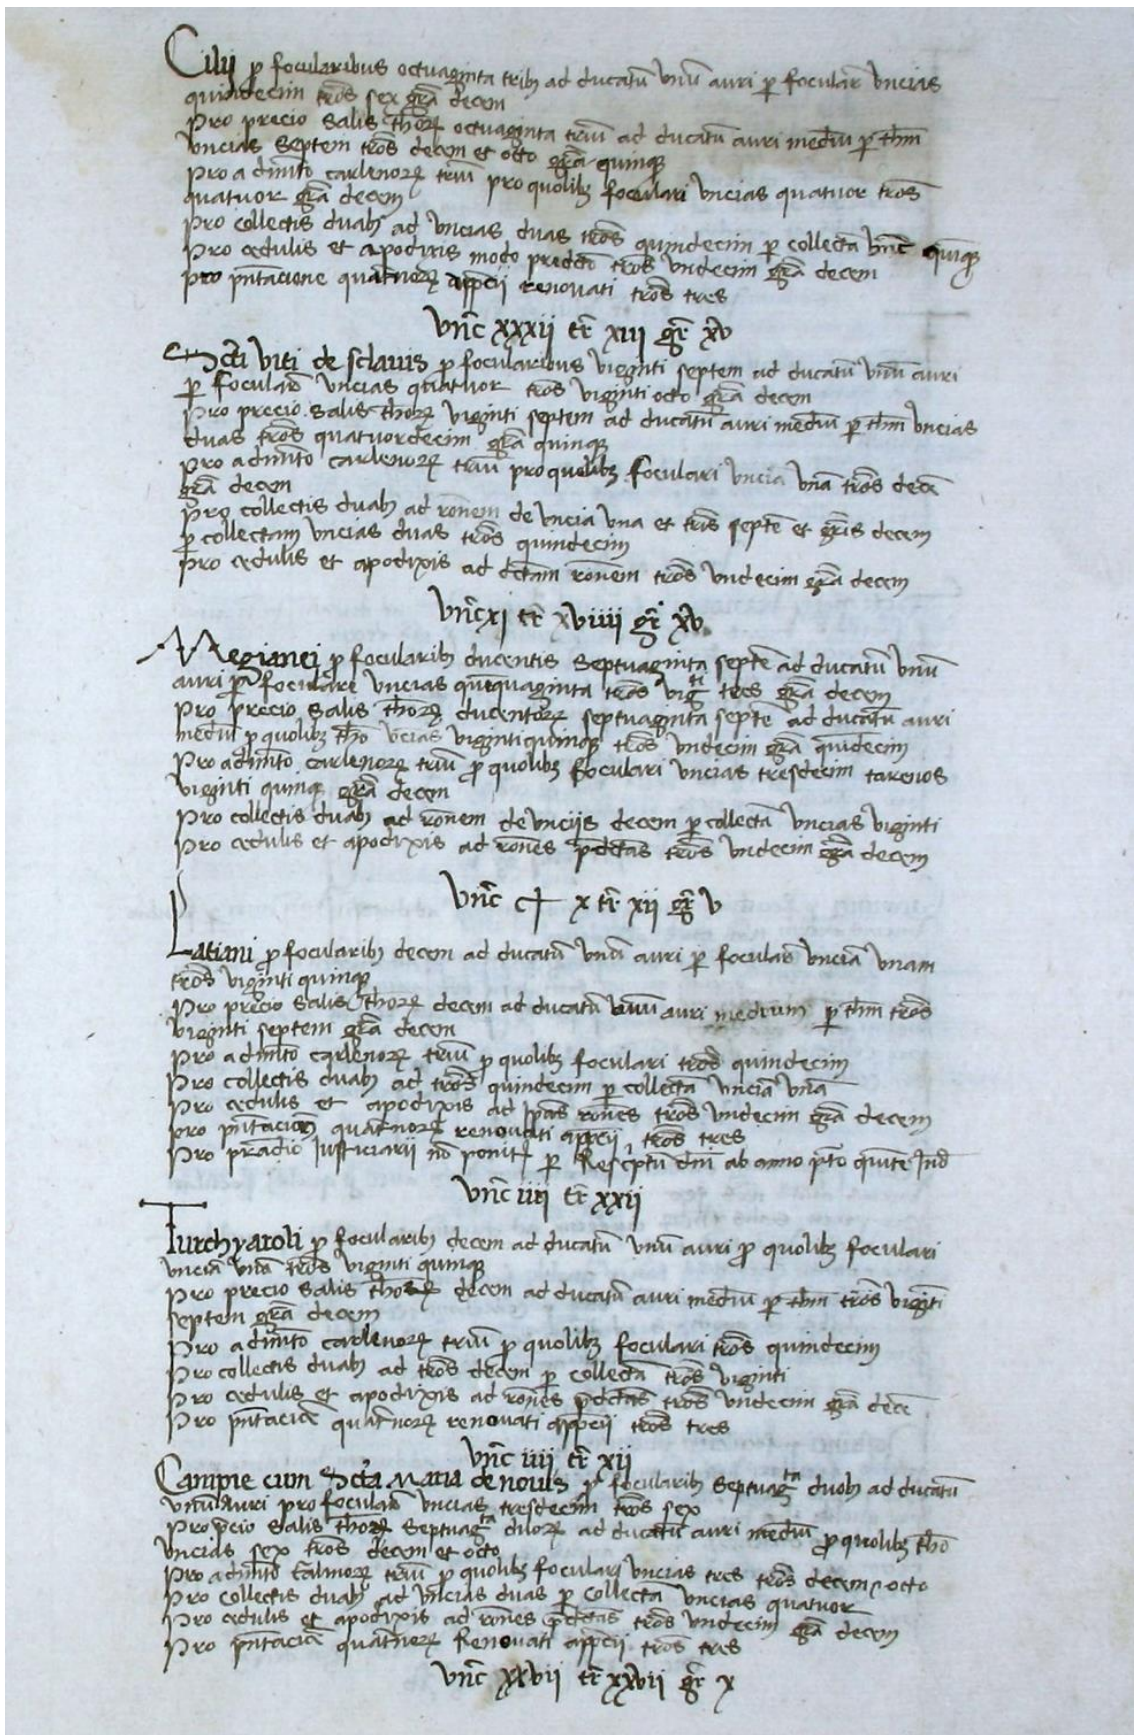 Cilij p focularibus octuaginta trib₃ ad ducatū vnū auri p foculaꝶ vncias
quindecim tros̄ sex grā decem
Pro precio salis thoꝝ octuaginta triū ad ducatū auri mediū p thm̄
vncias septem tros̄ decem et octo grā quinqȝ
Pro adim̄to carlenoꝝ triū pro quolibȝ foculari vncias quatuor tros̄
quatuor grā decem
Pro collectis duabȝ ad vncias duas tros̄ quindecim p collectā vnc̄ quīqȝ
Pro cedulis et apodixis modo predcō tros̄ vndecim grā decem
Pro pn̄tacione quat̄noꝝ app̄cij renovati tros̄ tres
vnc̄ xxxii tr̄ xiii gr̄ xv
Scti viti de sclavis p focularibus viginti septem ad ducatū vnū auri
p foculaꝶ vncias quatuor tros̄ viginti octo grā decem
Pro precio salis thoꝝ viginti septem ad ducatū auri mediū p thm̄ vncias
duas tros̄ quatuordecim grā quinqȝ
Pro adim̄to carlenoꝝ triū pro quolibȝ foculari vncia vnā tros̄ decē
grā decem
Pro collectis duabȝ ad ronem̄ de vncia vna et tris̄ septē et gris̄ decem
p collectam vncias duas tros̄ quindecim
Pro cedulis et apodixis ad dctam̄ ronem̄ tros̄ vndecim grā decem
vnc̄ xi tr̄ xviiii gr̄ xv
Megianei p focularibȝ ducentis septuaginta septē ad ducatū vnū
auri p foculare vncias quīquaginta tros̄ vigti tres grā decem
Pro precio salis thoꝝ ducentoꝝ septuaginta septē ad ducatū auri
mediū p quolibȝ tho vncias viginti quinqȝ tros̄ vndecim grā quīdecim
Pro adim̄to carlenoꝝ triū p quolibȝ foculari vncias tresdecim tarenos
viginti quinqȝ grā decem
Pro collectis duabȝ ad ronem̄ de vncijs decem p collectā vncias viginti
Pro cedulis et apodixis ad rones̄ pdctas̄ tros̄ vndecim grā decem
vnc̄ c x tr̄ xii gr̄ v
Latiani p focularibȝ decem ad ducatū vnū auri p foculaꝶ vnciā vnam
tros̄ viginti quinqȝ
Pro precio salis thoꝝ decem ad ducatū auri medium p thm̄ tros̄
viginti septem grā decem
Pro adim̄to carlenoꝝ triū p quolibȝ foculari tros̄ quindecim
Pro collectis duabȝ ad tros̄ quindecim p collectā vnciā vnā
Pro cedulis et apodixis ad ip̄as rones̄ tros̄ vndecim grā decem
Pro pn̄tacioȝ quat̄noꝝ renovati app̄cij tros̄ tres
Pro prandio Justiciarii nō ponitr̄ p Rescptū dn̄i ab anno pn̄to quīte Ind̄
vnc̄ iiii tr̄ xxii
Turchyaroli p focularibȝ decem ad ducatū vnū auri p quolibȝ foculari
vnciā vnā tros̄ viginti quinqȝ
Pro precio salis thoꝝ decem ad ducatū auri mediū p thm̄ tros̄ vigīti
septem grā decem
Pro adim̄to carlenoꝝ triū p quolibȝ foculari tros̄ quindecim
Pro collectis duabȝ ad tros̄ decem p collectā tros̄ viginti
Pro cedulis et apodixis ad rones̄ pdctas̄ tros̄ vndecim grā decē
Pro pn̄tacīe quat̄noꝝ renovati app̄cij tros̄ tres
vnc̄ iiii tr̄ xii
Campie cum Sctā Maria de novis p focularibȝ septuagta duobȝ ad ducatū
vnū auri pro foculaꝶ vncias tresdecim tros̄ sex
Pro pcio salis thoꝝ septuagta duoꝝ ad ducatū auri mediū p quolibȝ thō
vncias sex tros̄ decem et octo
Pro adim̄to carlinoꝝ triū p quolibȝ foculari vncias tres tros̄ decem octo
Pro collectis duabȝ ad vncias duas p collectā vncias quatuor
Pro cedulis et apodixis ad rones̄ pdctas̄ tros̄ vndecim grā decem
Pro pn̄tacīe quat̄noꝝ Renovati app̄cij tros̄ tres
vnc̄ xxvii tr̄ xxvii gr̄ x